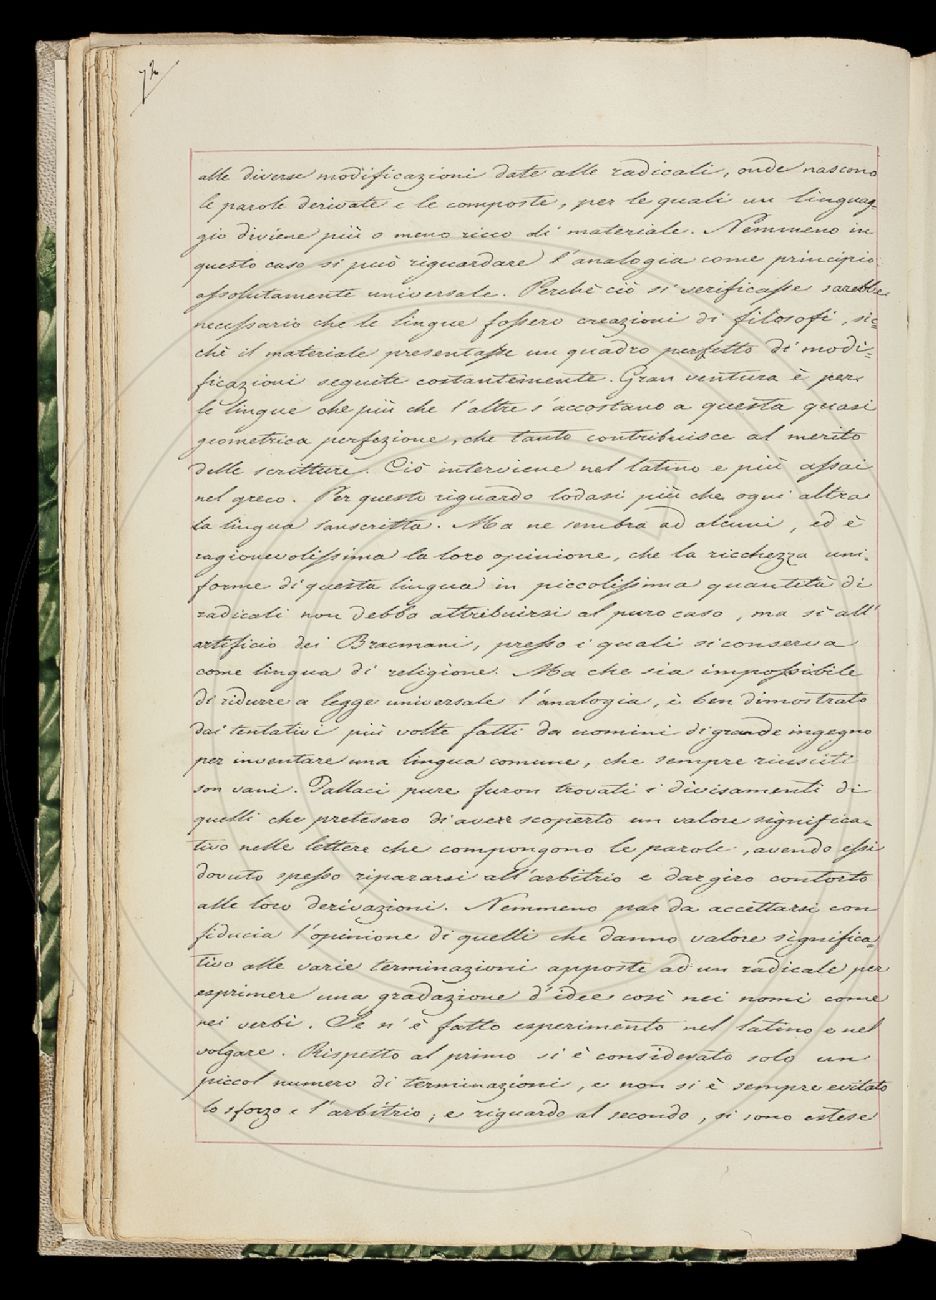 72
alle diverse modificazioni date alle radicali, onde nascono
le parole derivate e le composte, per le quali un linguag=
gio diviene più o meno ricco di materiale. Nemmeno in
questo caso si può riguardare l'analogia come principio
assolutamente universale. Perchè ciò si verificasse sarebbe
necessario che le lingue fossero creazioni di filosofi, sic=
chè il materiale presentasse un quadro perfetto di modi=
ficazioni seguite costantemente. Gran ventura è per
le lingue che più che l'altre s'accostano a questa quasi
geometrica perfezione, che tanto contribuisce al merito
delle scritture. Ciò interviene nel latino e più assai
nel greco. Per questo riguardo lodasi più che ogni altra
la lingua sanscritta. Ma ne sembra ad alcuni, ed è
ragionevolissima la loro opinione, che la ricchezza uni-
forme di questa lingua in piccolissima quantità di
radicali non debba attribuirsi al puro caso, ma sì all'
artificio dei Bracmani, presso i quali si conserva
come lingua di religione. Ma che sia impossibile
di ridurre a legge universale l'analogia, è ben dimostrato
dai tentativi più volte fatti da uomini di grande ingegno
per inventare una lingua comune, che sempre riusciti
son vani. Fallaci pure furon trovati i divisamenti di
quelli che pretesero di aver scoperto un valore significa=
tivo nelle lettere che compongono le parole, avendo essi
dovuto spesso ripararsi all'arbitrio e dar giro contorto
alle loro derivazioni. Nemmeno par da accettarsi con
fiducia l'opinione di quelli che danno valore significa=
tivo alle varie terminazioni apposte ad un radicale per
esprimere una gradazione d'idee così nei nomi come
nei verbi. Se n'è fatto esperimento nel latino e nel
volgare. Rispetto al primo si è considerato solo un
piccol numero di terminazioni, e non si è sempre evitato
lo sforzo e l'arbitrio; e riguardo al secondo, si sono estese